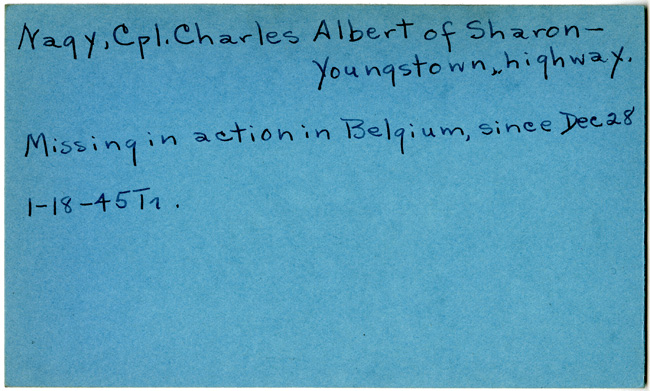 Nagy, Cpl. Charles Albert of Sharon-
Youngstown, highway.
Missing in action in Belgium, since Dec 28
1-18-45 Tr.